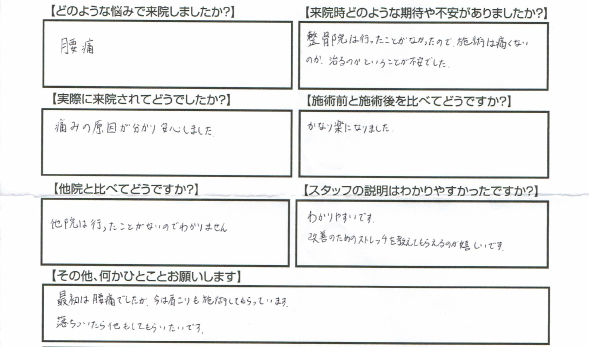 【どのような悩みで来院しましたか?】
腰痛
【来院時どのような期待や不安がありましたか?】
整骨院は行ったことがなかったので、施術は痛くない
のか、治るのかということが不安でした。
【実際に来院されてどうでしたか?】
痛みの原因が分かり安心しました
【施術前と施術後を比べてどうですか?】
かなり楽になりました。
【他院と比べてどうですか?】
他院は行ったことがないのでわかりません
【スタッフの説明はわかりやすかったですか?】
わかりやすいです。
改善のためのストレッチを教えてもらえるのが嬉しいです。
【その他、何かひとことお願いします】
最初は腰痛でしたが、今は肩こりも施術してもらっています。
落ちついたら他もしてもらいたいです。